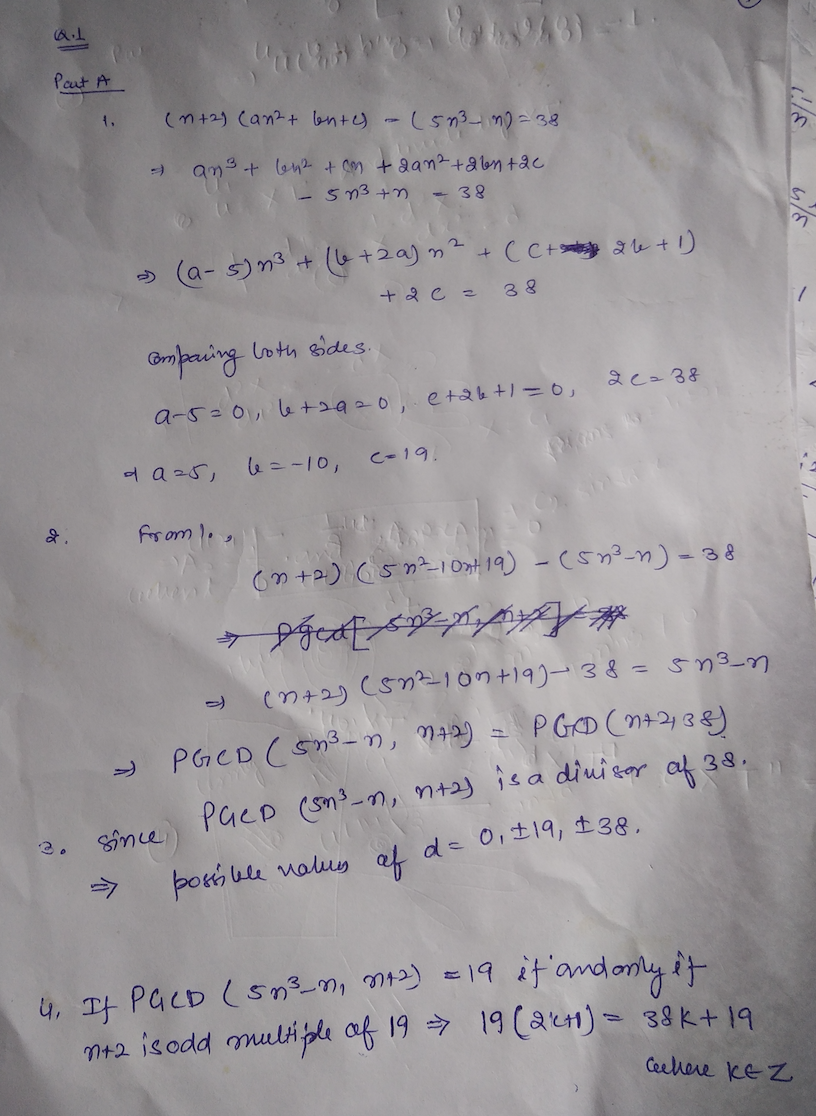 Q.1
Part A
1. (n+2) (an²+ bn+c) - (5n³-n) = 38
⇒ an³ + bn² + cn + 2an² + 2bn + 2c
- 5n³ + n = 38
⇒ (a-5)n³ + (b+2a)n² + (c+ 2b+1)
+ 2c = 38
Comparing both sides.
a-5=0, b+2a=0, c+2b+1=0, 2c=38
⇒ a=5, b=-10, c=19.
2. From 1.,
(n+2) (5n²-10n+19) - (5n³-n) = 38
⇒ pgcd[5n³-n, n+2] =
⇒ (n+2) (5n²-10n+19) - 38 = 5n³-n
⇒ PGCD (5n³-n, n+2) = PGCD (n+2, 38)
3. since PGCD (5n³-n, n+2) is a divisor of 38.
⇒ possible values of d = 0, ±19, ±38.
4. If PGCD (5n³-n, n+2) = 19 if and only if
n+2 is odd multiple of 19 ⇒ 19(2k+1) = 38k+19
where k∈Z